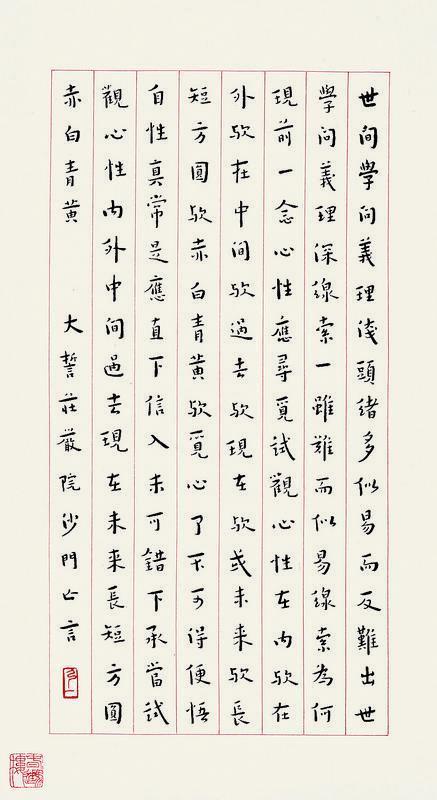 世間學問義理淺頭緒多似易而反難出世
學問義理深線索一雖難而似易線索為何
現前一念心性應尋覓試觀心性在內歟在
外歟在中間歟過去歟現在歟或未來歟長
短方圓歟赤白青黃歟覓心了不可得便悟
自性真常是應直下信入未可錯下承當試
觀心性內外中間過去現在未來長短方圓
赤白青黃 大誓莊嚴院沙門亡言